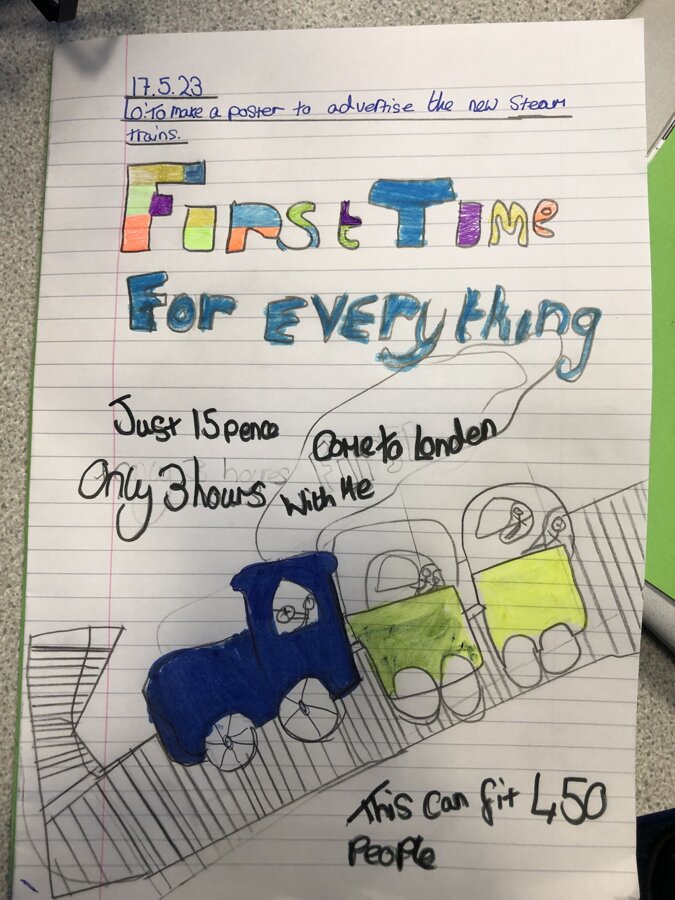 17.5.23
LO:To make a poster to advertise the new Steam
trains.
First Time
For Everything
Just 15 pence
Come to london
Only 3 hours
With Me
This can fit 450
People